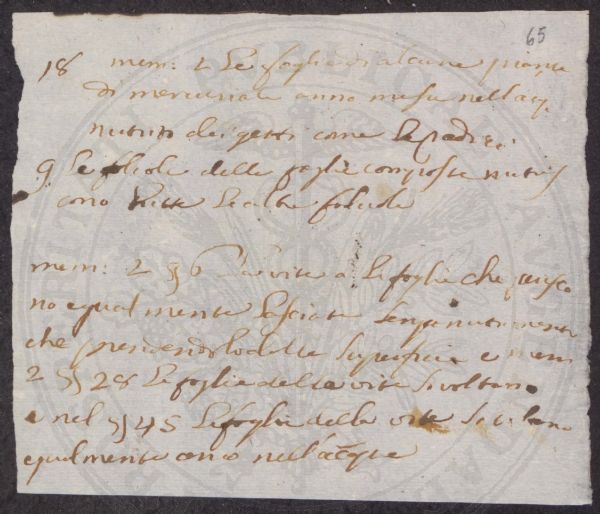 65
18 mem: 2 Le foglie di alcune piante
di mercuriale anno messe nell acq.
nutriti dei getti come le radici
9 Le foliole delle foglie composte nutris
cono tutte le altre foliole
mem: 2 § 6 La vite a le foglie che
no egualmente lasciate senza nutrimento
che prendendolo dalle superficie e mem
2 § 28 Le foglie della vite si voltano
e nel § 45 le foglie della vite si voltano
egualmente anco nell'acque